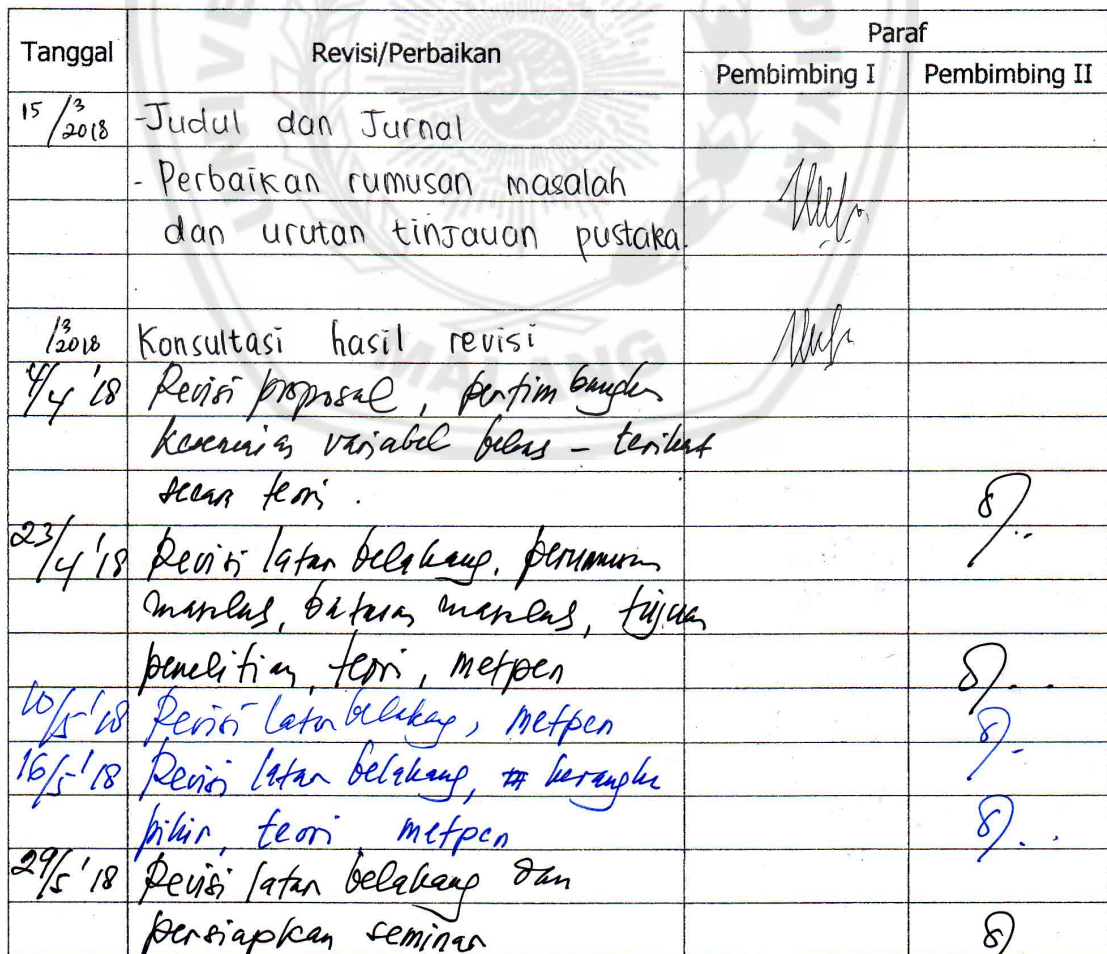 Tanggal Revisi/Perbaikan Paraf
Pembimbing I Pembimbing II
15/3 2018 -Judul dan Jurnal
- Perbaikan rumusan masalah
dan urutan tinjauan pustaka.
/3 2018 Konsultasi hasil revisi
4/4 '18 Revisi proposal, pertimbangkan
kesesuaian variabel bebas - terikat
secara teori.
23/4 '18 Revisi latar belakang, perumusan
masalah, batasan masalah, tujuan
penelitian, teori, metpen
10/5 '18 Revisi latar belakang, metpen
16/5 '18 Revisi latar belakang, kerangka
pikir, teori, metpen
29/5 '18 Revisi latar belakang dan
persiapkan seminar
MALANG